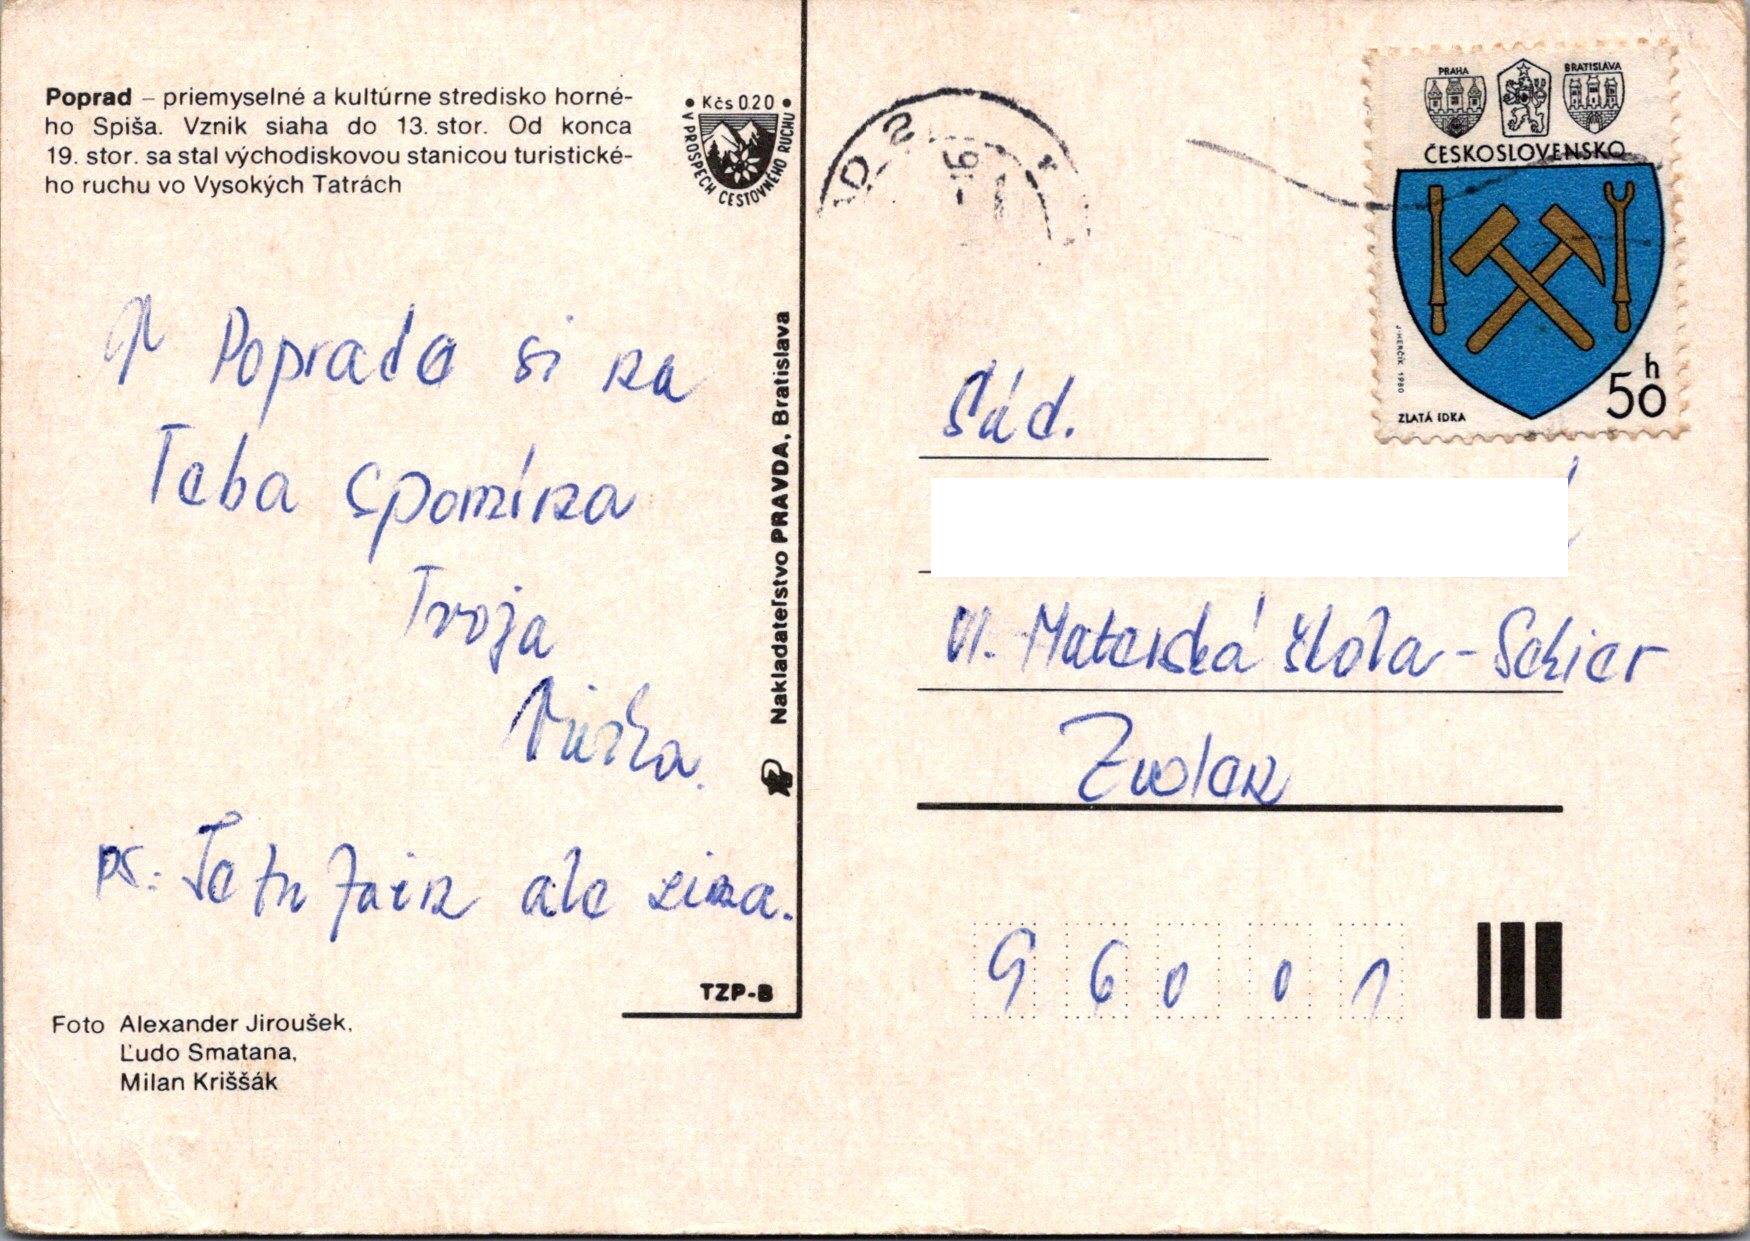 Poprad – priemyselné a kultúrne stredisko horné-
ho Spiša. Vznik siaha do 13. stor. Od konca
19. stor. sa stal východiskovou stanicou turistické-
ho ruchu vo Vysokých Tatrách
• Kčs 0.20 •
V PROSPECH CESTOVNÉHO RUCHU
PRAHA
BRATISLAVA
ČESKOSLOVENSKO
J. HERČÍK 1980
50 h
ZLATÁ IDKA
Poprada si na
Teba spomína
Tvoja
Miška.
ps: Je tu fain ale zima.
Nakladateľstvo PRAVDA, Bratislava
TZP-B
Foto Alexander Jiroušek,
Ľudo Smatana,
Milan Kriššák
Súd.
VI. Materská škola - Sekier
Zvolen
960 01